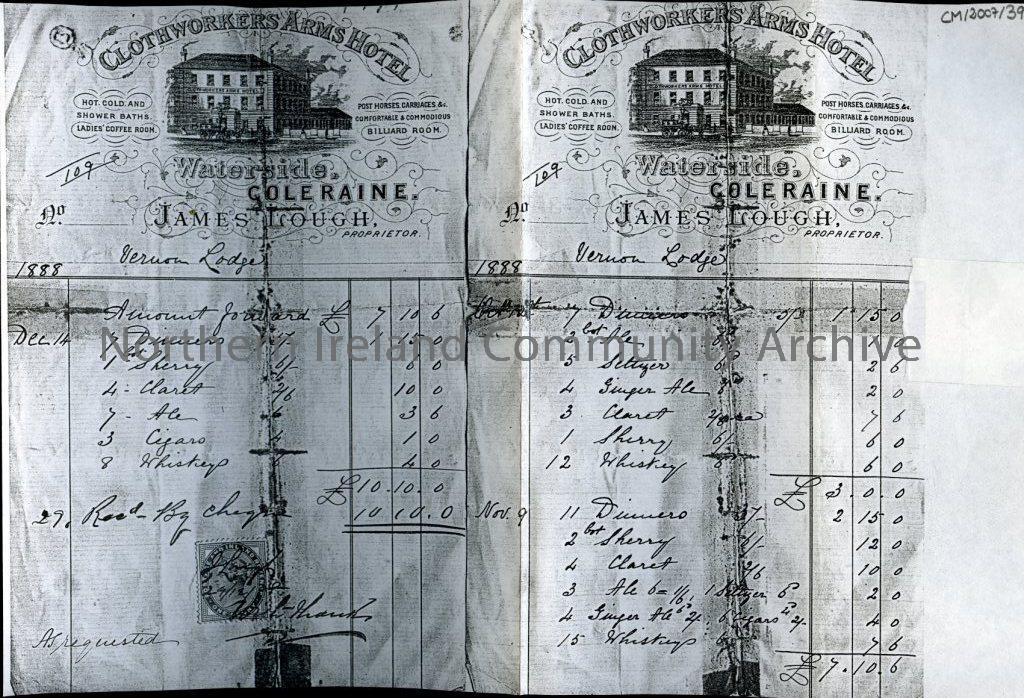 CM/2007/39
CLOTHWORKERS ARMS HOTEL
CLOTHWORKERS ARMS HOTEL
HOT, COLD, AND
SHOWER BATHS.
LADIES' COFFEE ROOM.
POST HORSES, CARRIAGES &c.
COMFORTABLE & COMMODIOUS
BILLIARD ROOM.
109
Waterside,
COLERAINE.
No.
JAMES LOUGH,
PROPRIETOR.
Vernon Lodge
1888
Amount forward £ 7 10 6
Dec. 14 Dinners 1 15 0
1 Sherry 6/- 6 0
4 - Claret 2/6 10 0
7 - Ale 6 3 6
3 Cigars 4 1 0
8 Whiskeys 4 0
£10.10.0
29. Recd By Cheque 10 10.0
As requested
CLOTHWORKERS ARMS HOTEL
CLOTHWORKERS ARMS HOTEL
HOT, COLD, AND
SHOWER BATHS.
LADIES' COFFEE ROOM.
POST HORSES, CARRIAGES &c.
COMFORTABLE & COMMODIOUS
BILLIARD ROOM.
109
Waterside,
COLERAINE.
No.
JAMES LOUGH,
PROPRIETOR.
Vernon Lodge
1888
7 Dinners 5/- 1 15 0
bot Ale
5 Seltzer 6 2 6
4 Ginger Ale 2 0
3 Claret 2/6 ea 7 6
1 Sherry 6/- 6 0
12 Whiskey 6 6 0
£ 3.0.0
Nov. 9 11 Dinners 2 15 0
2 bot Sherry 6/- 12 0
4 Claret 2/6 10 0
3 Ale 6 = 1/6, 1 Seltzer 6d 2 0
4 Ginger Ale 6 Cigars 4 0
15 Whiskeys 7 6
£7.10.6
Northern Ireland Community Archive